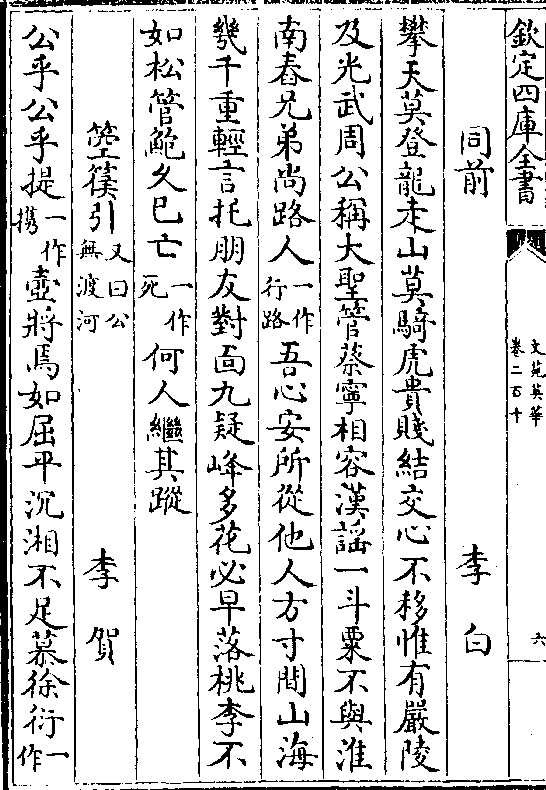 欽定四庫全書
文苑英華
卷二百十
六
同前 李白
攀天莫登龍走山莫騎虎貴賤結交心不移惟有嚴陵
及光武周公稱大聖管蔡寧相容漢謡一斗粟不與淮
南舂兄弟尚路人一作行路吾心安所從他人方寸間山海
幾千重輕言托朋友對面九疑峰多花必早落桃李不
如松管鮑久已亡一作死何人繼其蹤
箜篌引又曰公無渡河 李賀
公乎公乎提一作攜壺將焉如屈平沉湘不足慕徐衍一作